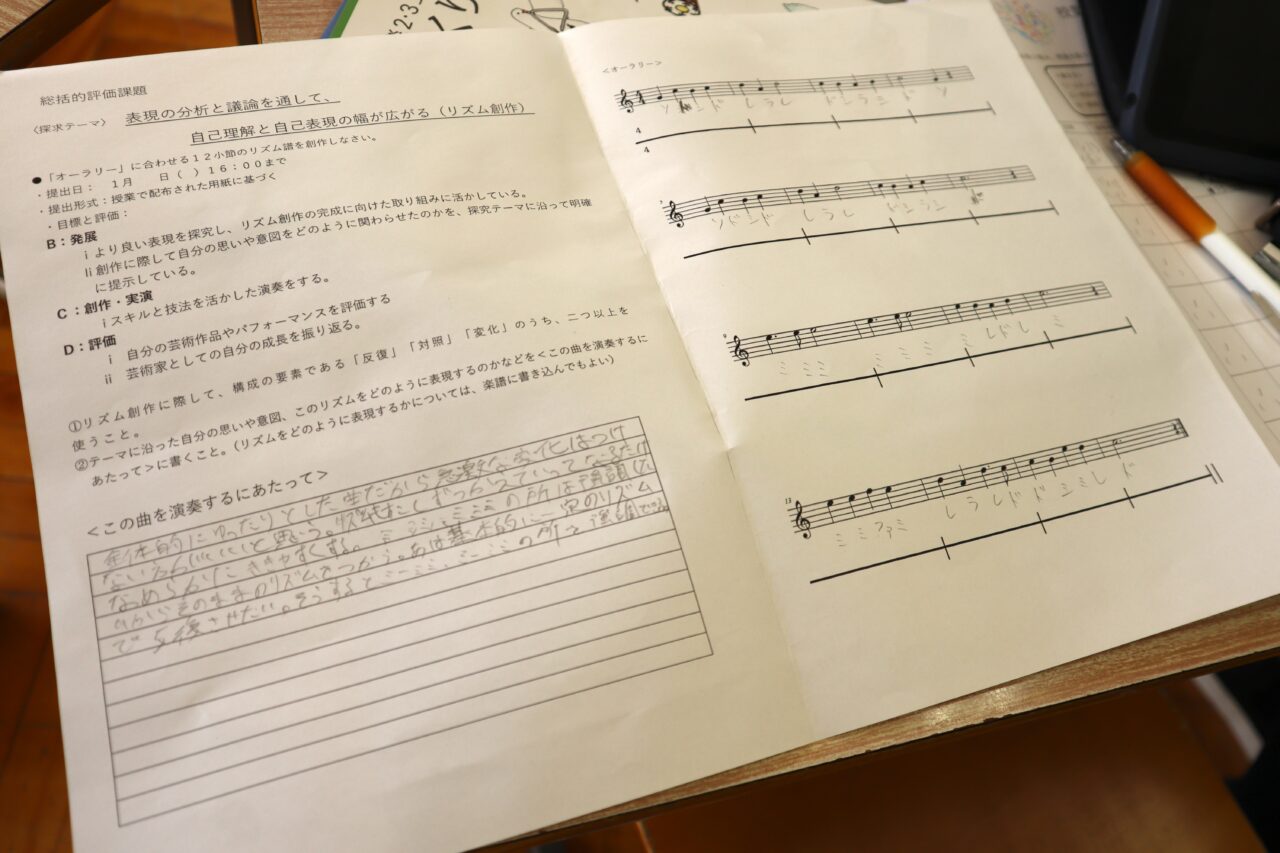 総括的評価課題
〈探求テーマ〉 表現の分析と議論を通して、
自己理解と自己表現の幅が広がる(リズム創作)
●「オーラリー」に合わせる12小節のリズム譜を創作しなさい。
・提出日: 1月 日( )16:00まで
・提出形式:授業で配布された用紙に基づく
・目標と評価:
B:発展
ⅰより良い表現を探究し、リズム創作の完成に向けた取り組みに活かしている。
ⅱ創作に際して自分の思いや意図をどのように関わらせたのかを、探究テーマに沿って明確
に提示している。
C:創作・実演
ⅰスキルと技法を活かした演奏をする。
D:評価
ⅰ 自分の芸術作品やパフォーマンスを評価する
ⅱ 芸術家としての自分の成長を振り返る。
①リズム創作に際して、構成の要素である「反復」「対照」「変化」のうち、二つ以上を
使うこと。
②テーマに沿った自分の思いや意図、このリズムをどのように表現するのかなどを<この曲を演奏するに
あたって>に書くこと。(リズムをどのように表現するかについては、楽譜に書き込んでもよい)
<この曲を演奏するにあたって>
全体的にゆったりとした曲だから急激な変化はつけ
ない方がいいと思う。
なめらかにききやすくする。
そのままのリズムをつかう。あは基本的に一定のリズム
で反復させたい。そうすると
<オーラリー>
4
4
ソ ド シ ド レ ラ レ ド シ ラ シ ド ソ
5
ソ ド シ ド レ ラ レ ド シ ラ シ
9
ミ ミ ミ ミ ミ ミ ミ レ ド レ ミ
13
ミ ミ ファ ミ レ ラ レ ド ド シ ミ レ ド